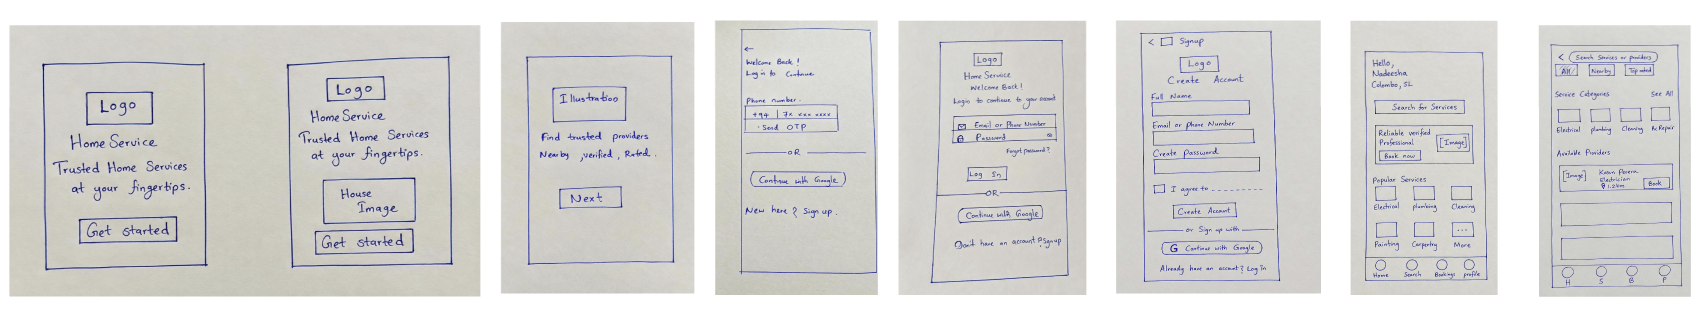 Logo
Home Service
Trusted Home Services
at your fingertips.
Get started
Logo
Home Service
Trusted Home Services
at your fingertips.
House
Image
Get started
Illustration
Find trusted providers
Nearby , verified , Rated .
Next
←
Welcome Back !
Log in to Continue
Phone number.
+94 | 7x xxx xxxx
· Send OTP
OR
Continue with Google
New here ? Sign up .
Logo
Home Service
Welcome Back !
Login to continue to your account
Email or Phone Number
Password
Forgot password ?
Log In
OR
Continue with Google
Don't have an account ? Signup
< Signup
Logo
Create Account
Full Name
Email or phone Number
Create Password
I agree to
Create Account
or Sign up with
G Continue with Google
Already have an account? Log In
Hello,
Nadeesha
Colombo, SL
Search for Services
Reliable verified
Professional
[Image]
Book now
Popular Services
Electrical plumbing Cleaning
...
Painting Carpentry More
Home Search Bookings profile
< Search Services or providers
All Nearby Top rated
Service Categories See All
Electrical plumbing Cleaning Ac Repair
Available Providers
[Image]
Kasun Perera
Electrician
1.2km
Book
H S B P